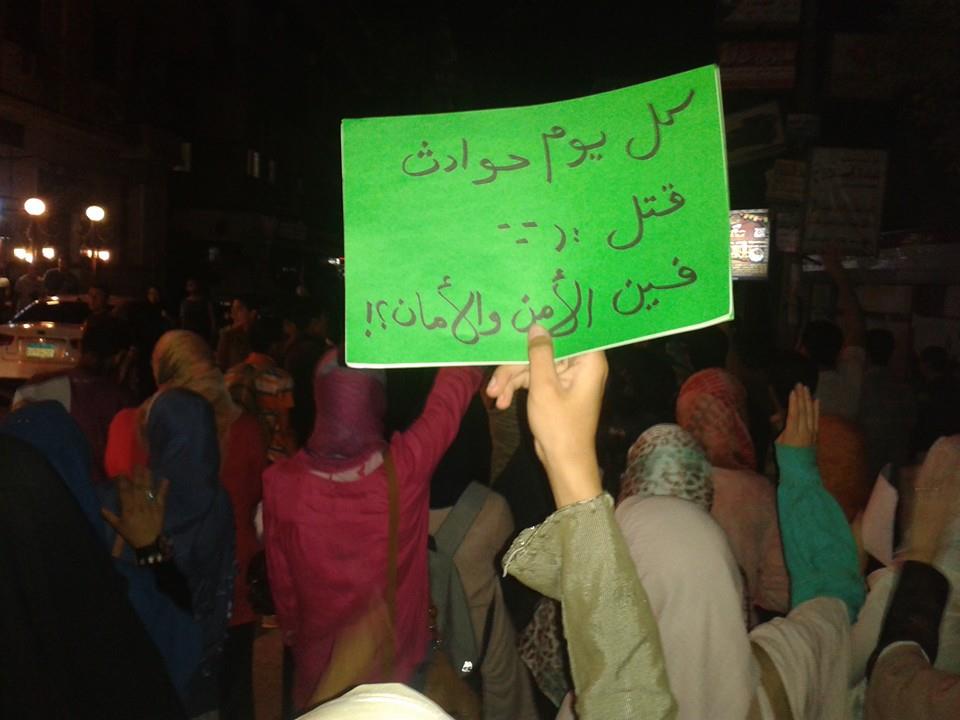 كل يوم حوادث
قتل
فين الأمن والأمان؟!